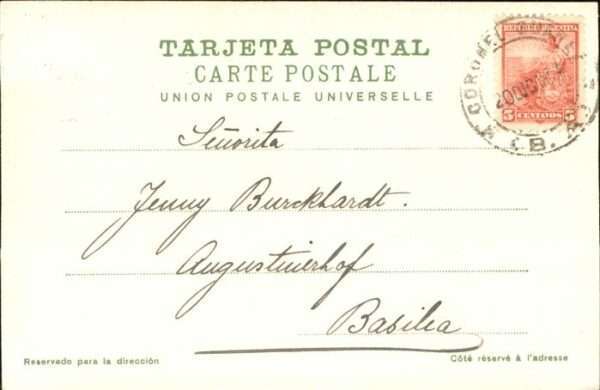 TARJETA POSTAL
CARTE POSTALE
UNION POSTALE UNIVERSELLE
REPUBLICA ARGENTINA
5 CENTAVOS 5
CORONEL
Señorita
Jenny Burckhardt.
Augustinerhof
Basilea
Reservado para la dirección
Côté réservé à l'adresse